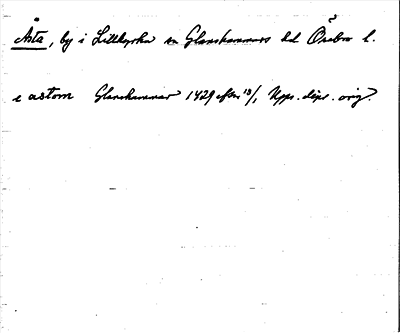 Åsta, by i Lillkyrka sn Glanshammars hd Örebro l.
i astom Glanshamar 1429 efter 13/1 Upps. dipl. orig.